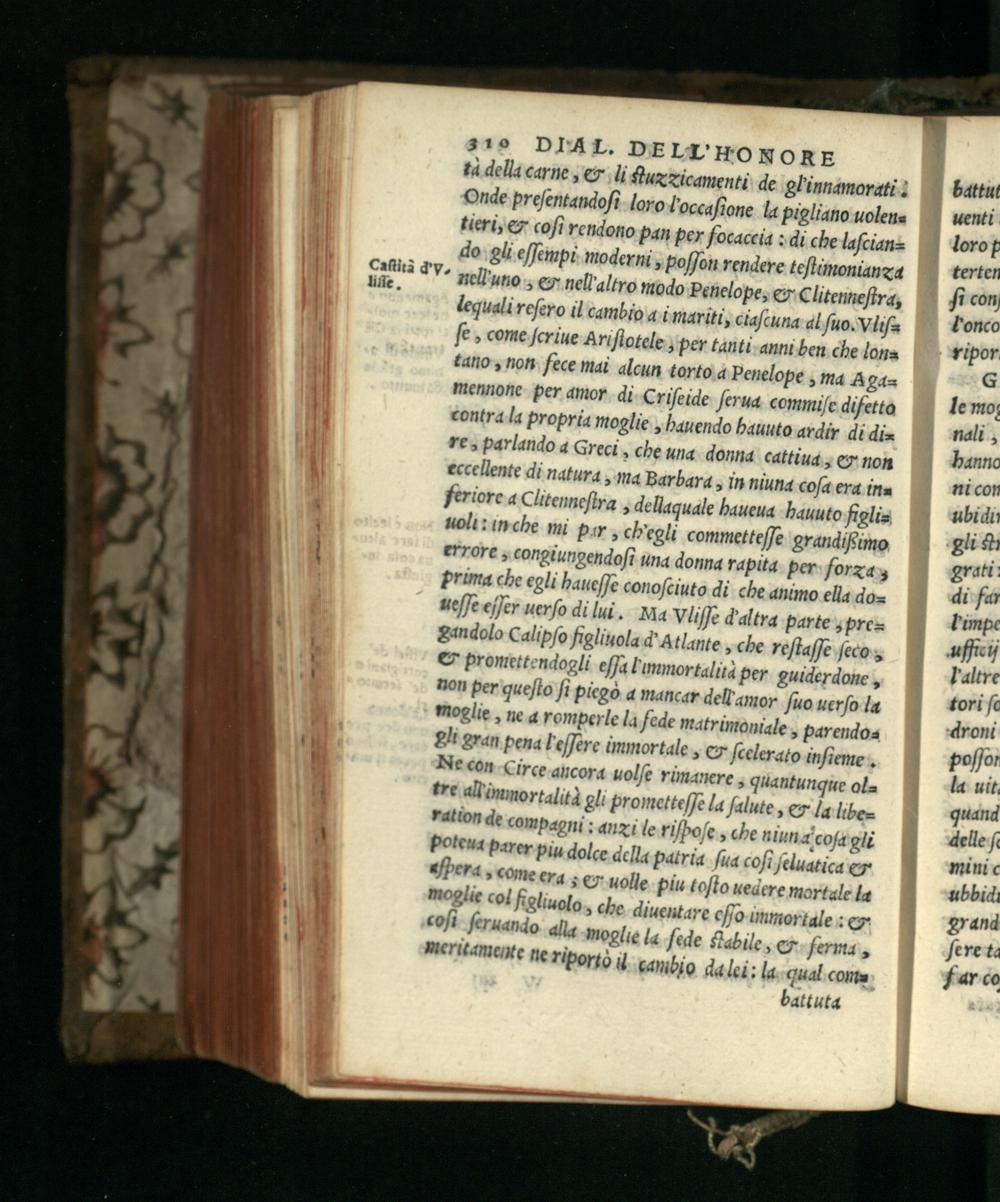 310 DIAL. DELL'HONORE
tà della carne, & li stuzzicamenti de gl'innamorati.
Onde presentandosi loro l'occasione la pigliano uolen=
tieri, & cosi rendono pan per focaccia : di che lascian=
do gli essempi moderni, posson rendere testimonianza
Castità d'V-
lisse.
nell'uno, & nell'altro modo Penelope, & Clitennestra,
lequali resero il cambio a i mariti, ciascuna al suo. Vlis=
se, come scriue Aristotele, per tanti anni ben che lon=
tano, non fece mai alcun torto a Penelope, ma Aga=
mennone per amor di Criseide serua commise difetto
contra la propria moglie, hauendo hauuto ardir di di=
re, parlando a Greci, che una donna cattiua, & non
eccellente di natura, ma Barbara, in niuna cosa era in=
feriore a Clitennestra, dellaquale haueua hauuto figli=
uoli : in che mi par, ch'egli commettesse grandißimo
errore, congiungendosi una donna rapita per forza,
prima che egli hauesse conosciuto di che animo ella do=
uesse esser uerso di lui. Ma Vlisse d'altra parte, pre=
gandolo Calipso figliuola d'Atlante, che restasse seco,
& promettendogli essa l'immortalità per guiderdone,
non per questo si piegò a mancar dell'amor suo uerso la
moglie, ne a romperle la fede matrimoniale, parendo=
gli gran pena l'essere immortale, & scelerato insieme.
Ne con Circe ancora uolse rimanere, quantunque ol=
tre all'immortalità gli promettesse la salute, & la libe=
ration de compagni : anzi le rispose, che niuna cosa gli
poteua parer piu dolce della patria sua cosi seluatica &
aspera, come era ; & uolle piu tosto uedere mortale la
moglie col figliuolo, che diuentare esso immortale : &
cosi seruando alla moglie la fede stabile, & ferma,
meritamente ne riportò il cambio da lei : la qual com=
battuta
battut
uenti
loro p
terten
si con
l'onco
ripor
G
le mog
nali,
hanno
ni con
ubidir
gli str
grati
di far
l'impe
ufficij
l'altre
tori so
droni
posson
la uita
quand
delle se
mini c
ubbidi
grand
sere ta
far cos